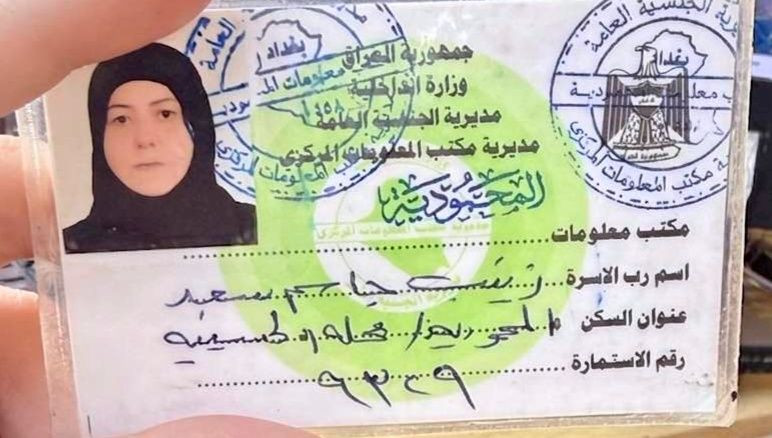 جمهورية العراق
وزارة الداخلية
مديرية الجنسية العامة
مديرية مكتب المعلومات المركزي
المحمودية
مكتب معلومات
اسم رب الاسرة زينب سعيد
عنوان السكن
رقم الاستمارة ٩٣٢٩
مديرية الجنسية العامة
بغداد
جمهورية العراق
مكتب المعلومات المركزي
العامة
بغداد
مكتب المعلومات المركزي